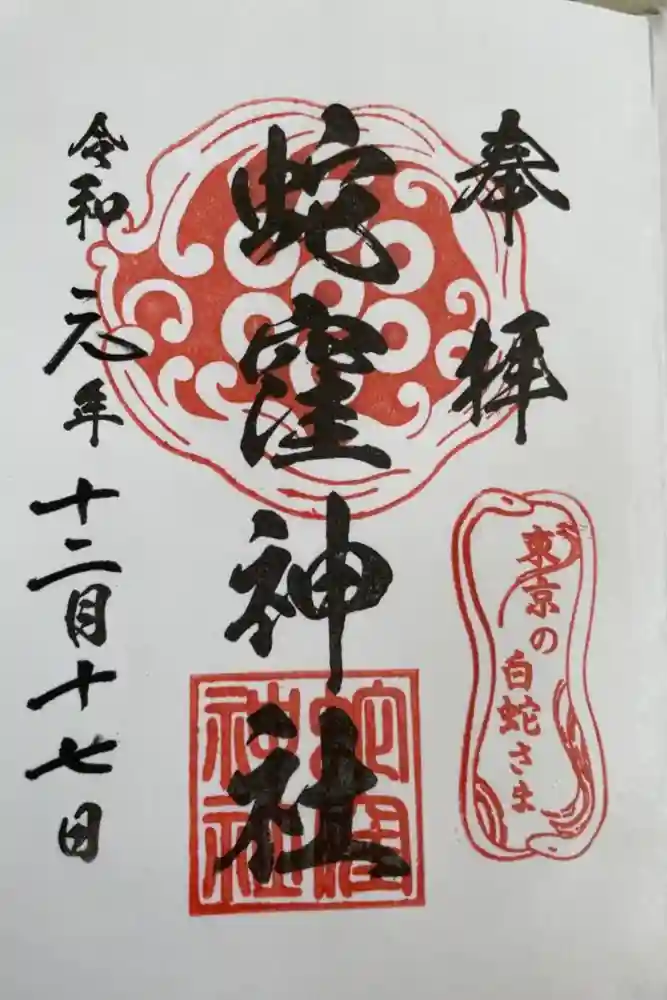 奉拝
蛇窪神社
令和元年十二月十七日
東京の
白蛇さま
蛇窪
神社